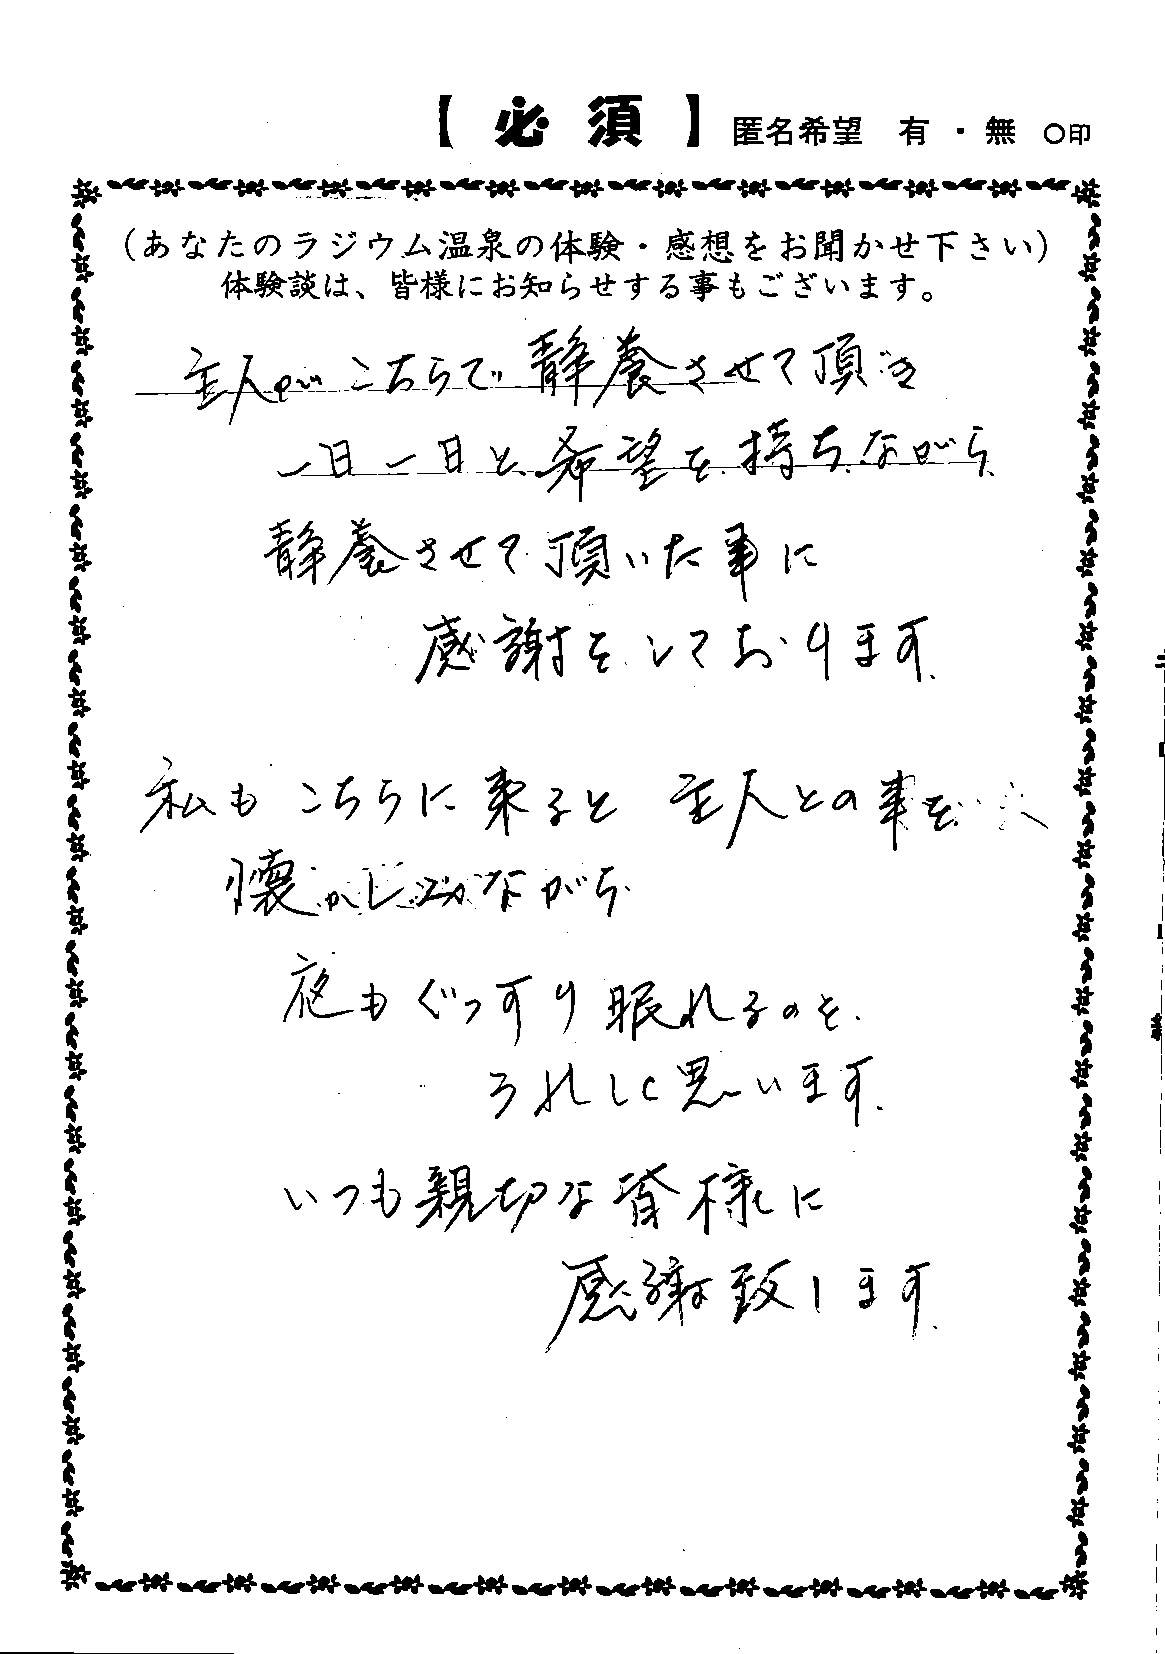 【必須】 匿名希望 有・無 〇印
(あなたのラジウム温泉の体験・感想をお聞かせ下さい)
体験談は、皆様にお知らせする事もございます。
主人が こちらで 静養させて頂き
一日一日と希望を持ちながら
静養させて頂いた事に
感謝をしております。
私も こちらに来ると 主人との事を
懐かしみながら
夜もぐっすり眠れるのを
うれしく思います。
いつも親切な皆様に
感謝致します。